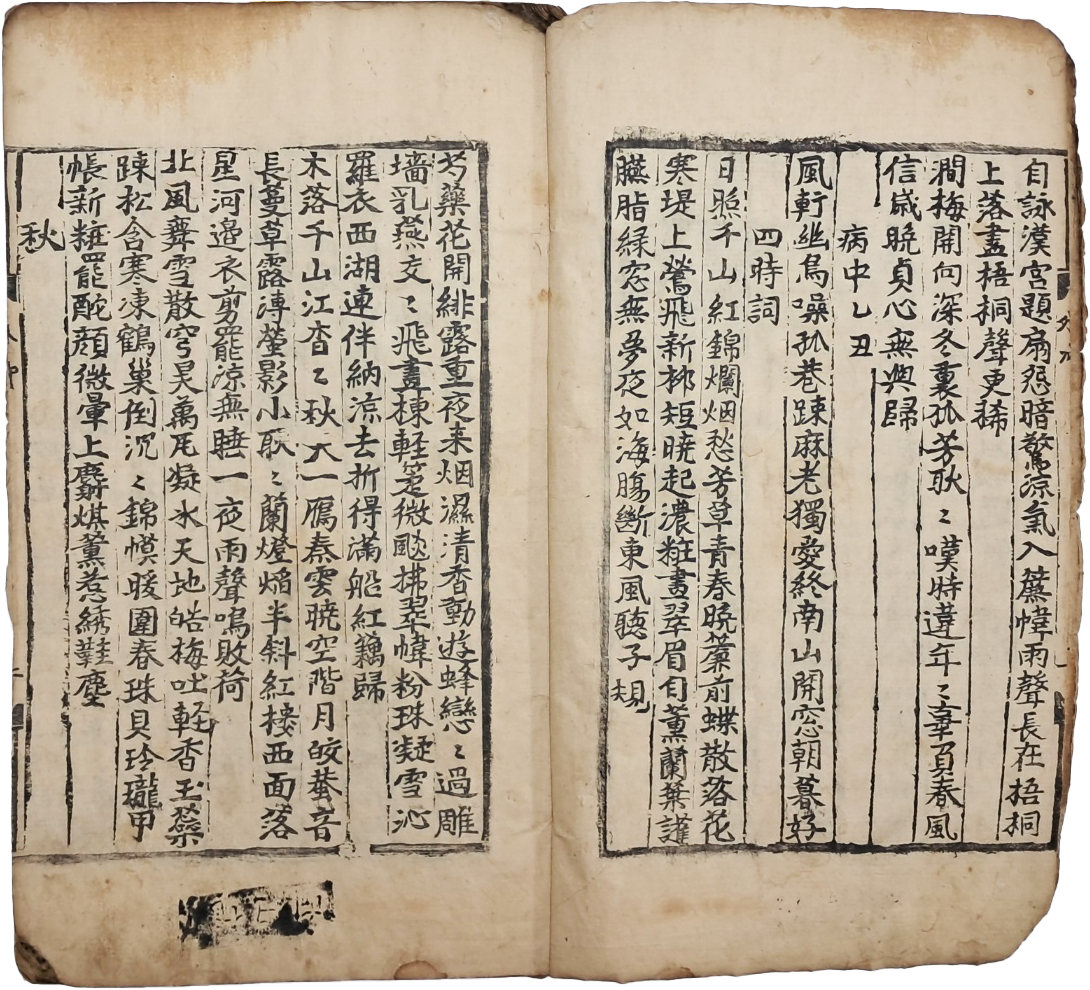 自詠漢宮題扇怨暗驚涼氣入簾幃雨聲長在梧桐
上落盡梧桐聲更稀
澗梅開向深冬裏孤芳耿〻嘆時違年〻辜負春風
信歲晚貞心無與歸
病中乙丑
風軒幽鳥噪孤巷踈麻老獨愛終南山開窓朝暮好
四時詞
日照千山紅錦爛烟愁芳草青春晚簾前蝶散落花
寒堤上鶯飛新柳短曉起濃粧畫翠眉匂薰蘭葉謹
臙脂綠窓無夢夜如海膓斷東風聽子規
芍藥花開緋露重夜来烟濕清香動遊蜂戀〻過雕
墻乳燕交〻飛畫棟輕箑微颸拂翠幃粉珠凝雪沁
羅衣西湖連伴納涼去折得滿船紅藕歸
木落千山江杳〻秋大一鴈秦雲曉空階月皎蛬音
長蔓草露溥螢影小耿〻蘭燈焰半斜紅樓西面落
星河邉衣剪罷涼無睡一夜雨聲鳴敗荷
北風舞雪散穹昊萬瓦凝氷天地皓梅吐輕香玉蘂
踈松含寒凍鶴巢倒沉〻錦幙暖圍春珠貝玲瓏甲
帳新粧罷酡顔微暈上麝煤薰惹綉鞋塵
秋